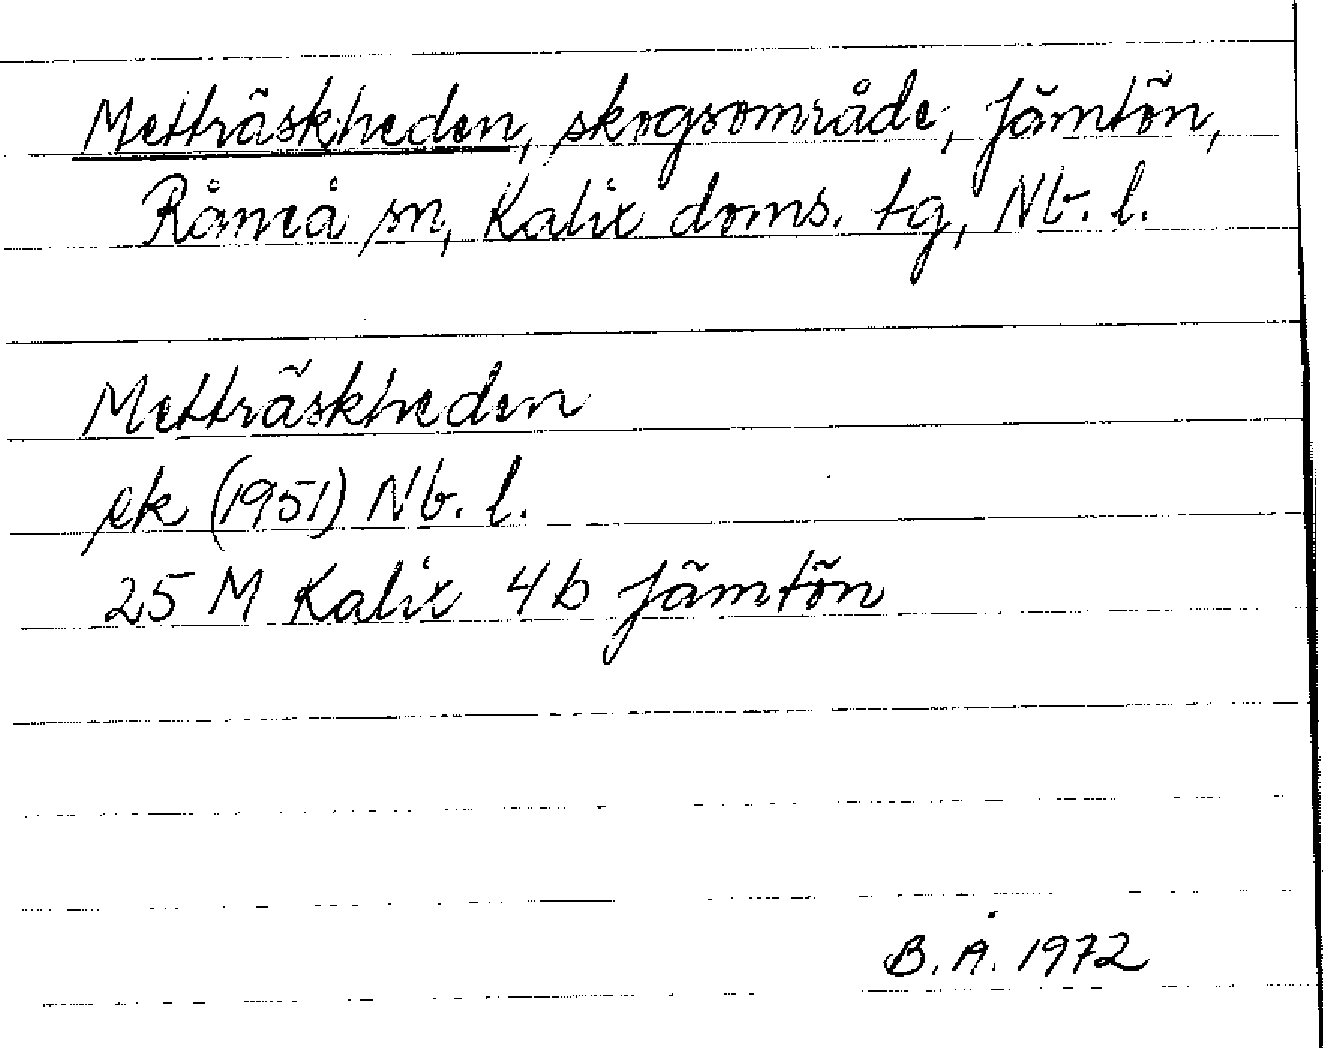 Metträskheden, skogsområde, Jämtön,
Råneå sn, Kalix doms. tg, Nb. l.
Metträskheden
ek (1951) Nb. l.
25 M Kalix 4b Jämtön
B. Å. 1972